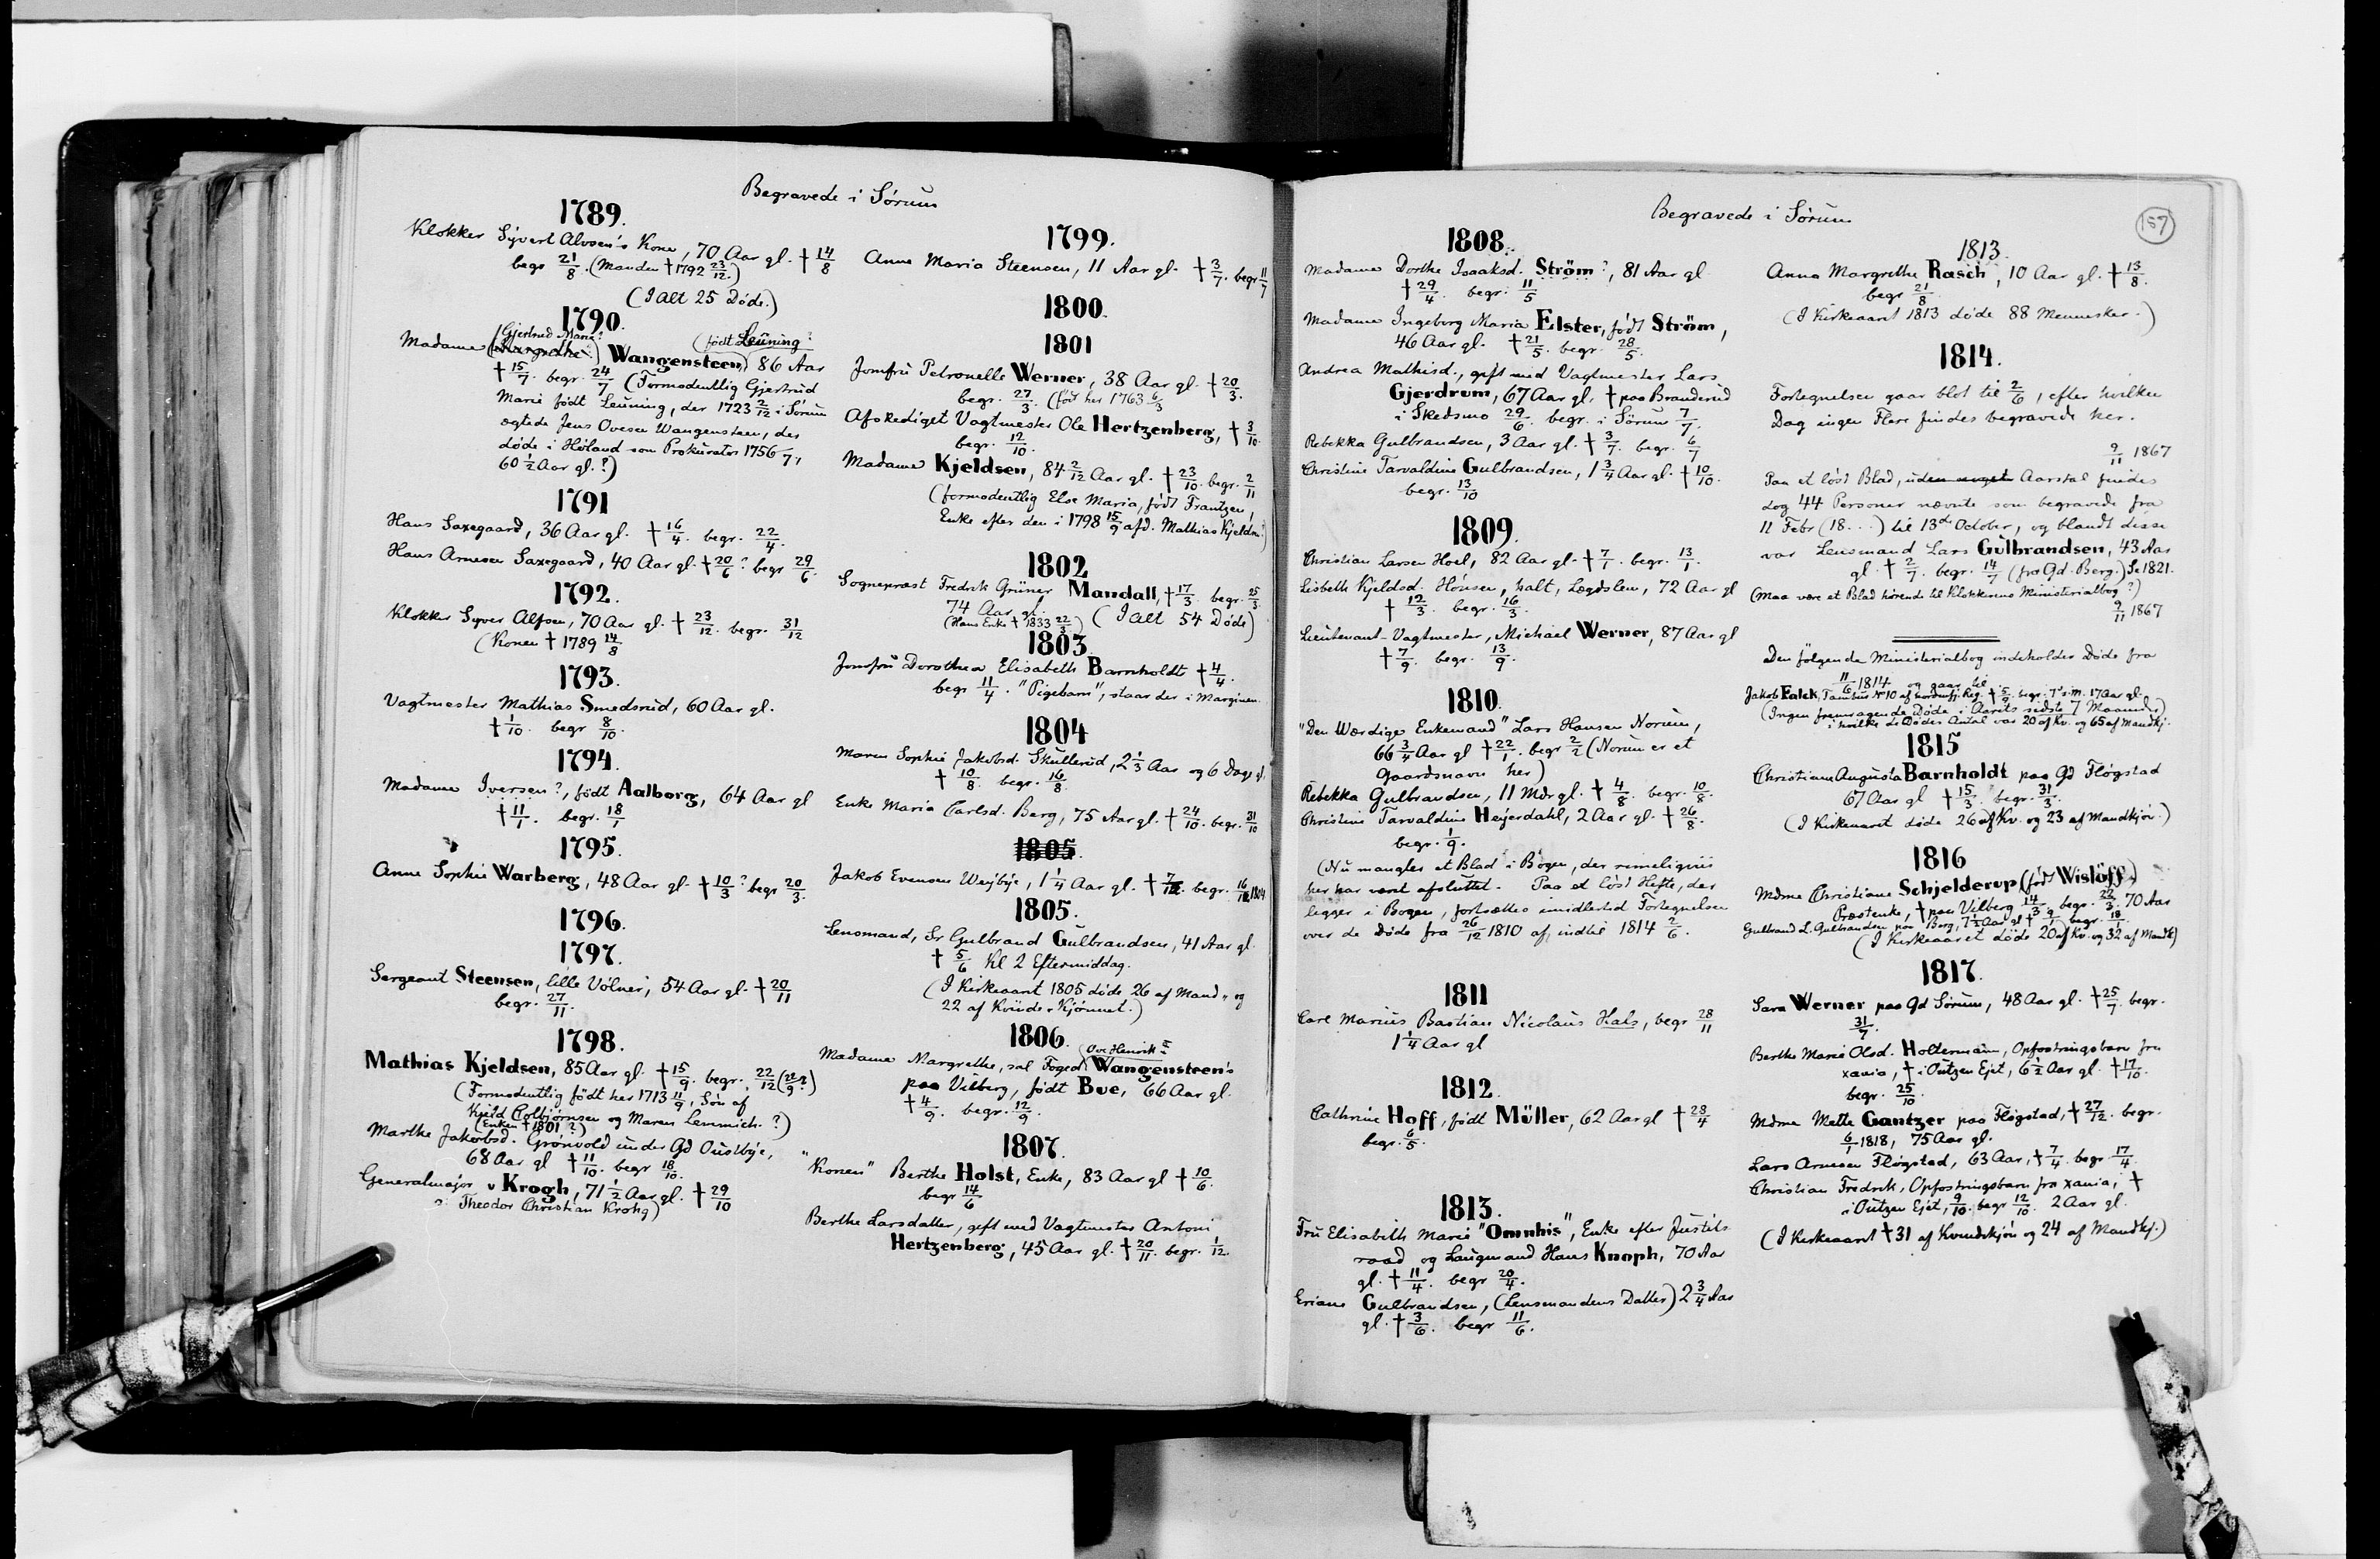 Begravede i Sörum
1789.
Klokker Syvert Alvsen's Kone, 70 Aar gl. † 14/8
begr 21/8. (Manden † 1792 23/12.)
(I Alt 25 Döde.)
1790.
(Gjertrud Marie? (født Leuning?
Madame Wangensteen) 86 Aar
† 15/7. begr. 24/7 (Formodentlig Gjertrud
Marie født Leuning, der 1723 2/12 i Sörum
ægtede Jens Ovesen Wangensteen, der
døde i Höland som Prokurator 1756
60 1/2 Aar gl.?)
1791
Hans Saxegaard, 36 Aar gl. † 16/4. begr. 22/4.
Hans Arnesen Saxegaard, 40 Aar gl. † 20/6? begr 29/6.
1792.
Klokker Syver Alfsen, 70 Aar gl. † 23/12. begr. 31/12
(Konen † 1789 14/8
1793.
Vagtmester Mathias Smedsrud, 60 Aar gl.
† 1/10. begr 8/10.
1794.
Madame Iversen?, født Aalborg, 64 Aar gl
† 11/1. begr. 18/1
1795.
Anne Sophie Warberg, 48 Aar gl. † 10/3? begr 20/3.
1796.
1797.
Sergeant Steensen, lille Völner, 54 Aar gl. † 20/11
begr. 27/11.
1798.
Mathias Kjeldsen, 85 Aar gl. † 15/9. begr. 22/12 (22/9?)
(Formodentlig født her 1713 11/9, Sön af
Kjeld Colbjörnsen og Maren Lemmich.?)
(Enken † 1801?)
Marthe Jakobsd. Grönvold under Gd Oustbye,
68 Aar gl † 11/10. begr 18/10.
Generalmajor v Krogh, 71 1/2 Aar gl. † 29/10
Theodor Christian Krohg)
1799.
Anne Maria Steensen, 11 Aar gl. † 3/7. begr 11/7
1800.
1801
Jomfru Petronelle Werner, 38 Aar gl. † 20/3.
begr. 27/3. (født her 1763 6/3
Afskediget Vagtmester Ole Hertzenberg, † 3/10.
begr. 12/10.
Madame Kjeldsen, 84 2/12 Aar gl. † 23/10. begr. 2/11
(formodentlig Else Maria, født Frantzen,
Enke efter den i 1798 15/9 afd. Mathias Kjeldsen?)
1802
Sognepræst Fredrik Grüner Mandall, † 17/3. begr. 25/3
74 Aar gl.
(Hans Enke † 1833 22/3) (I Alt 54 Döde)
1803.
Jomfru Dorothea Elisabeth Barnholdt † 4/4.
begr 11/4. "Pigebarn", staar der i Marginen.
1804
Maren Sophie Jakobsd. Skullerud, 2 1/3 Aar og 6 Dage gl.
† 10/8. begr. 16/8.
Enke Maria Carlsd. Berg, 75 Aar gl. † 24/10. begr. 31/10
1805.
Jakob Evensen Weybye, 1 1/4 Aar gl. † begr. 1804
1805.
Lensmand, Sr Gulbrand Gulbrandsen, 41 Aar gl.
† 5/6 Kl 2 Eftermiddag.
(I Kirkeaaret 1805 döde 26 af Mand- og
22 af Kvinde-Kjönnet.)
1806.
(Ove Henrik
Madame Margrethe, sal Foged Wangensteen's
paa Vilberg, født Bue, 66 Aar gl.
† 4/9. begr. 12/9.
1807.
"Konen" Berthe Holst, Enke, 83 Aar gl † 10/6.
begr 14/6
Berthe Larsdatter, gift med Vagtmester Antoni
Hertzenberg, 45 Aar gl. † 20/11. begr. 1/12.
Begravede i Sörum
157
1808.
Madame Dorthe Isaaksd. Ström?, 81 Aar gl
† 29/4. begr. 11/5
Madame Ingeborg Maria Elster, født Ström,
46 Aar gl. † 21/5. begr. 28/5.
Andrea Mathisd., gift med Vagtmester Lars
Gjerdrum, 67 Aar gl. † paa Branderud
i Skedsmo 29/6. begr. i Sörum 7/7.
Rebekka Gulbrandsen, 3 Aar gl. † 3/7. begr. 6/7
Christine Tarvaldine Gulbrandsen, 1 3/4 Aar gl. † 10/10.
begr. 13/10
1809.
Christian Larsen Hoel, 82 Aar gl. † 7/1. begr. 13/1.
Lisbeth Kjeldsd. Hönsen, halt, Lægdslem, 72 Aar gl
† 12/3. begr. 16/3.
Lieutenant-Vagtmester, Michael Werner, 87 Aar gl
† 7/9. begr. 13/9.
1810.
"Den Værdige Enkemand" Lars Hansen Norum,
66 3/4 Aar gl † 22/1. begr 2/2 (Norum er et
Gaardsnavn her)
Rebekka Gulbrandsen, 11 Mdr gl. † 4/8. begr. 10/8.
Christine Tarvaldine Heyerdahl, 2 Aar gl. † 26/8.
begr. 1/9.
(Nu mangler et Blad i Bogen, der rimeligviis
her har været afsluttet. Paa et löst Hefte, der
ligger i Bogen, fortsættes imidlertid Fortegnelsen
over de Döde fra 26/12 1810 af, indtil 1814 2/6.
1811
Carl Marius Bastian Nicolaus Hals, begr 28/11
1 1/4 Aar gl
1812.
Cathrine Hoff, født Müller, 62 Aar gl † 28/4
begr. 6/5.
1813.
Fru Elisabeth Marie "Omnhis", Enke efter Justits
raad og Laugmand Hans Knoph, 70 Aar
gl. † 11/4. begr 20/4.
Eriane Gulbrandsen, (Lensmandens Datter) 2 3/4 Aar
gl. † 3/6. begr 11/6.
1813.
Anna Margrethe Rasch, 10 Aar gl. † 13/8.
begr 21/8.
(I Kirkeaaret 1813 döde 88 Mennesker.)
1814.
Fortegnelsen gaar blot til 2/6, efter hvilken
Dag ingen Flere findes begravede her.
9/11 1867
Paa et löst Blad, uden noget Aarstal findes
dog 44 Personer nævnte som begravede fra
11 Febr (18...) til 13de October, og blandt disse
var Lensmand Lars Gulbrandsen, 43 Aar
gl. † 2/7. begr. 14/7 (fra Gd. Berg.) Se 1821.
(Maa være et Blad hörende til Klokkerens Ministerialbog?)
9/11 1867
Den fölgende Ministerialbog indeholder Döde fra
11/6 1814 og gaar til
Jakob Falck, Tambur No 10 af nordenfj. Reg. † 5/9. begr. 7 s.m. 17 Aar gl.
(Ingen fremragende Döde i Aarets sidste 7 Maaneder)
i hvilke de Dödes Antal var 20 af Kv. og 65 af Mandkj.
1815
Christiane Augusta Barnholdt paa Gd Flögstad
67 Aar gl † 15/3. begr. 31/3.
(I Kirkeaaret döde 26 af Kv. og 23 af Mandkjön.)
1816
Mdme Christiane Schjelderup (født Wislöff)
Præstenke, † paa Vilberg 14/3 begr. 22/3. 70 Aar
Gulbrand L. Gulbrandsen paa Berg, 7 1/2 Aar gl † 9/1 begr. 18/1.
(I Kirkeaaret döde 20 af Kv. og 32 af Mandk)
1817.
Sara Werner paa Gd Sörum, 48 Aar gl. † 25/7. begr.
31/7.
Berthe Marie Olsd. Holtermann, Opfostringsbarn fra
Xania, † i Outzen Ejet, 6 1/2 Aar gl. † 17/10.
begr. 25/10
Mdme Mette Gantzer paa Flögstad, † 27/12. begr.
6/1 1818, 75 Aar gl.
Lars Arnesen Flögstad, 63 Aar, † 7/4. begr 17/4.
Christian Fredrik, Opfostringsbarn fra Xania, †
i Outzen Ejet, 9/10. begr 12/10. 2 Aar gl.
(I Kirkeaaret † 31 af Kvindekjön og 24 af Mandkj.)